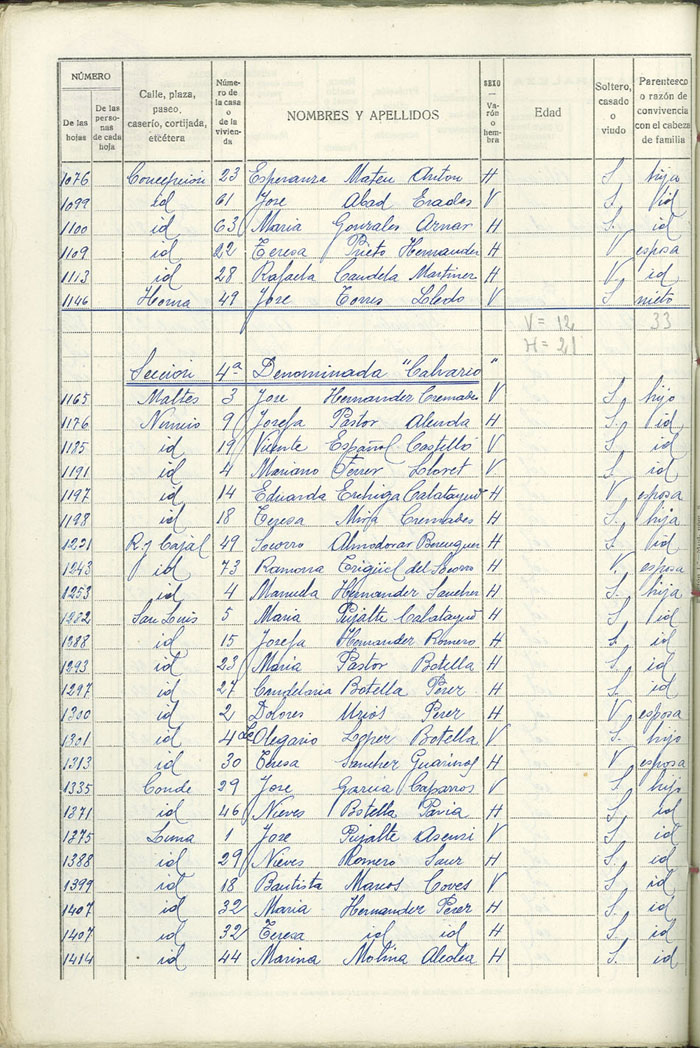 NÚMERO
De las hojas
De las personas de cada hoja
Calle, plaza, paseo, caserío, cortijada, etcétera
Número de la casa o de la vivienda
NOMBRES Y APELLIDOS
SEXO — Varón o hembra
Edad
Soltero, casado o viudo
Parentesco o razón de convivencia con el cabeza de familia
1076 Concepcion 23 Esperanza Mateu Anton H S. hija
1099 id 61 Jose Abad Erades V S. id
1100 id 63 Maria Gonzales Aznar H S. id
1109 id 22 Teresa Prieto Hernandez H V esposa
1113 id 28 Rafaela Candela Martinez H V. id
1146 Horna 49 Jose Torres Lledo V S. nieto
V = 12 33
H = 21
Seccion 4ª Denominada "Calvario"
1165 Maltes 3 Jose Hernandez Cremades V S. hijo
1176 9 Josefa Pastor Alenda H S. id
1185 id 19 Vicente Español Castelló V S. id
1191 id 4 Mariano Ferrer Lloret V S. id
1197 id 14 Eduarda Calatayud H V. esposa
1198 id 18 Teresa Mira Cremades H S. hija
1221 R. y Cajal 49 Socorro Almodovar Berenguer H S. id
1243 id 73 Ramona del Socorro H V. esposa
1253 id 4 Manuela Hernandez Sanchez H S. hija
1282 San Luis 5 Maria Pujalte Calatayud H S. id
1288 id 15 Josefa Hernandez Romero H S. id
1293 id 23 Maria Pastor Botella H S. id
1297 id 27 Candelaria Botella Perez H S. id
1300 id 2 Dolores Urios Perez H V esposa
1301 id 4 Olegario Lopez Botella V S. hijo
1313 id 30 Teresa Sanchez Guarinos H V esposa
1335 Conde 29 Jose Garcia Caparros V S. hijo
1371 id 46 Nieves Botella Pavia H S. id
1375 Luna 1 Jose Pujalte Asensi V S. id
1388 id 29 Nieves Romero Saez H S. id
1399 id 18 Bautista Marcos Coves V S. id
1407 id 32 Maria Hernandez Perez H S. id
1407 id 32 Teresa id id H S. id
1414 id 44 Marina Molina Alcolea H S. id